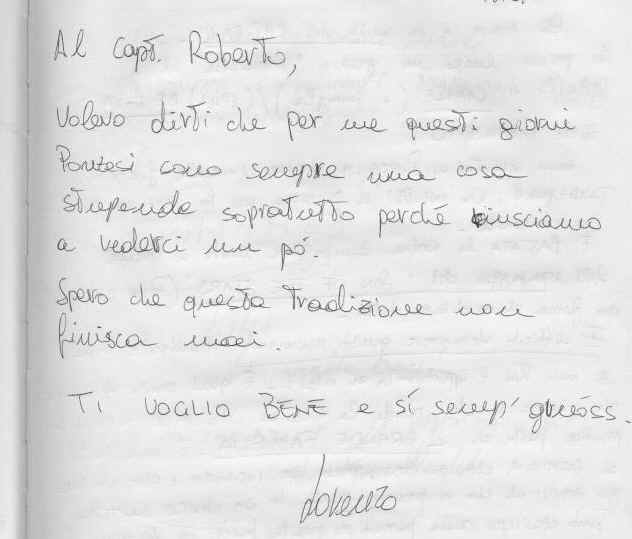 Al Capt. Roberto,
Volevo dirti che per me questi giorni
Ponzesi sono sempre una cosa
stupenda sopratutto perché riusciamo
a vederci un pó.
Spero che questa Tradizione non
finisca mai.
TI VOGLIO BENE e sí semp'
Lorenzo